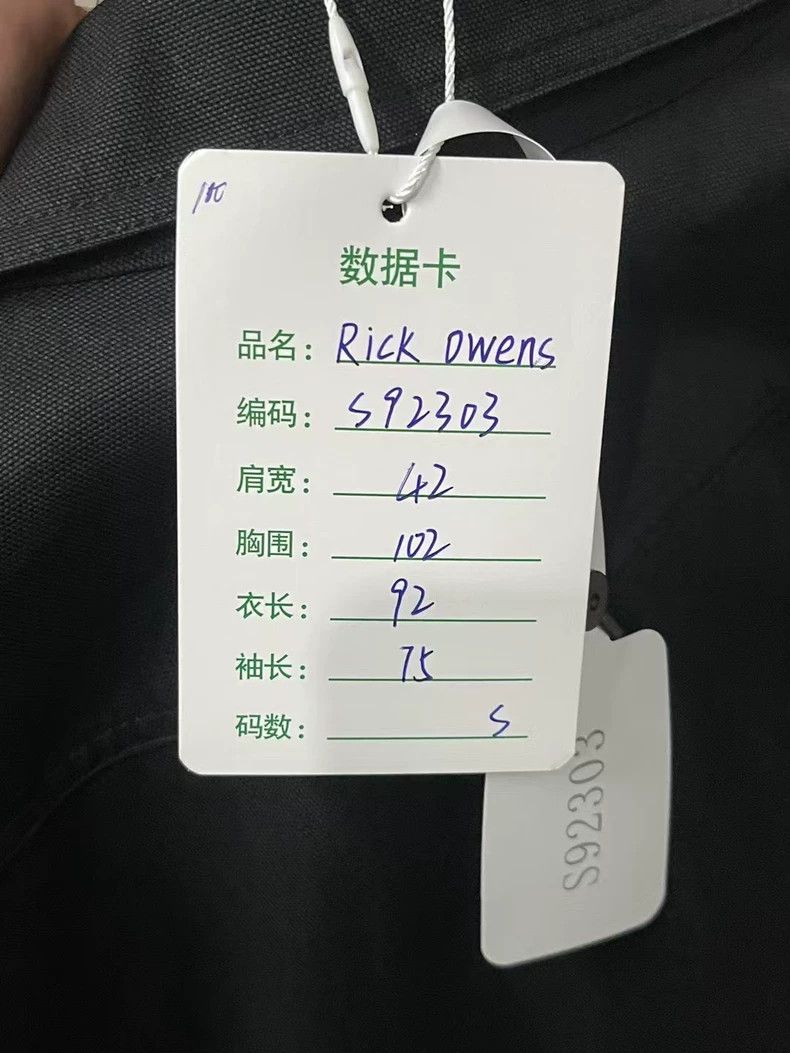 数据卡
品名：Rick Owens
编码：S92303
肩宽：42
胸围：102
衣长：92
袖长：75
码数：S
S92303